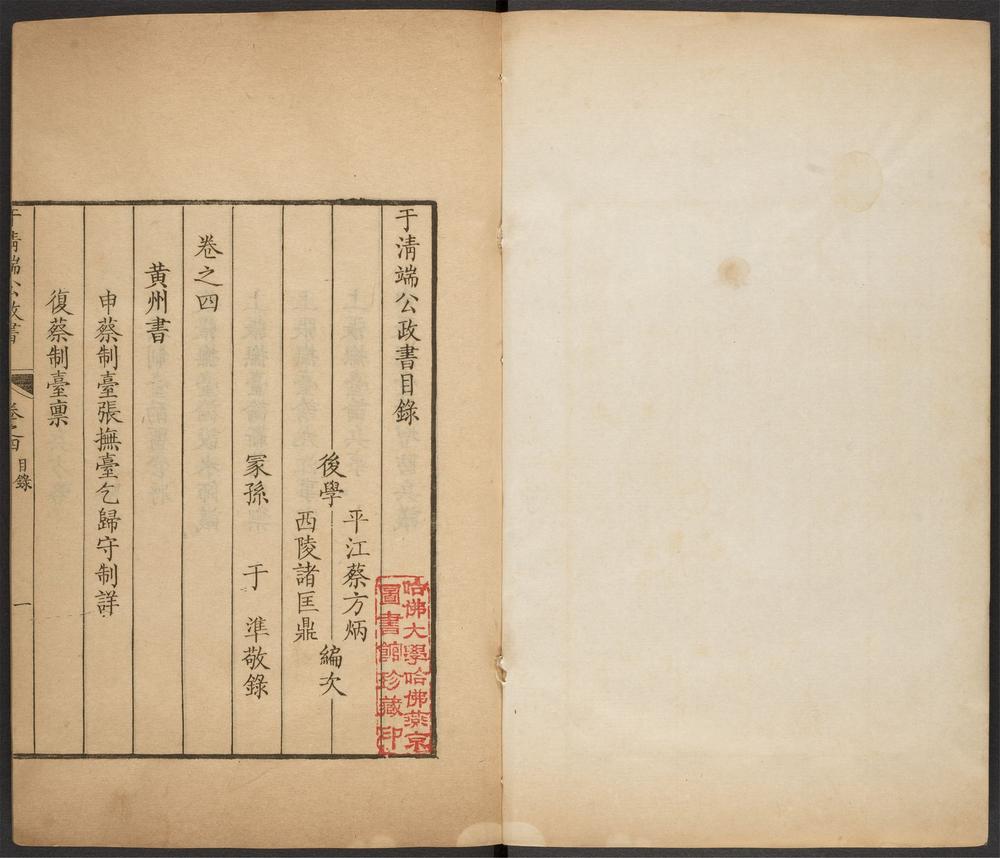 于淸端公政書目錄
後學
平江蔡方炳
西陵諸匡鼎
編次
冢孫 于 準敬錄
卷之四
黃州書
申蔡制臺張撫臺乞歸守制詳
復蔡制臺禀
于淸端公政書 卷之四 目錄 一
哈佛大學哈佛燕京
圖書館珍藏印